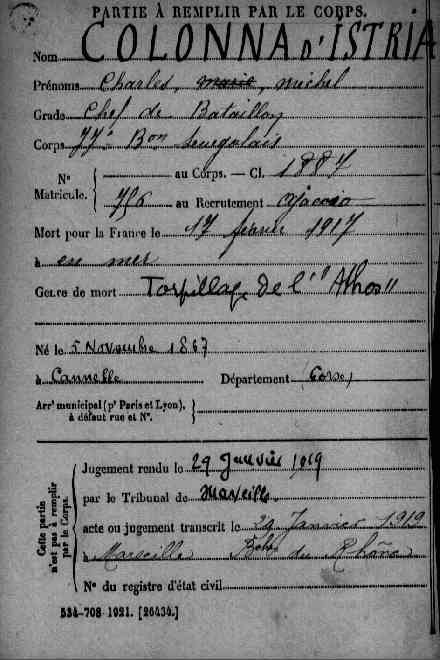 PARTIE À REMPLIR PAR LE CORPS.
Nom COLONNA D'ISTRIA
Prénoms Charles, Marie, Michel
Grade Chef de Bataillon
Corps 77e Bon Senegalais
Nº Matricule. { au Corps. — Cl. 1887
756 au Recrutement Ajaccio
Mort pour la France le 17 février 1917
à en mer
Genre de mort Torpillage de l'"Athos"
Né le 5 Novembre 1867
à Cannelle Département Corse
Arrt municipal (pr Paris et Lyon), à défaut rue et Nº. }
Cette partie n'est pas à remplir par le Corps.
Jugement rendu le 29 Janvier 1919
par le Tribunal de Marseille
acte ou jugement transcrit le 29 Janvier 1919
à Marseille Bches du Rhône
Nº du registre d'état civil
534-708-1921. [26434.]